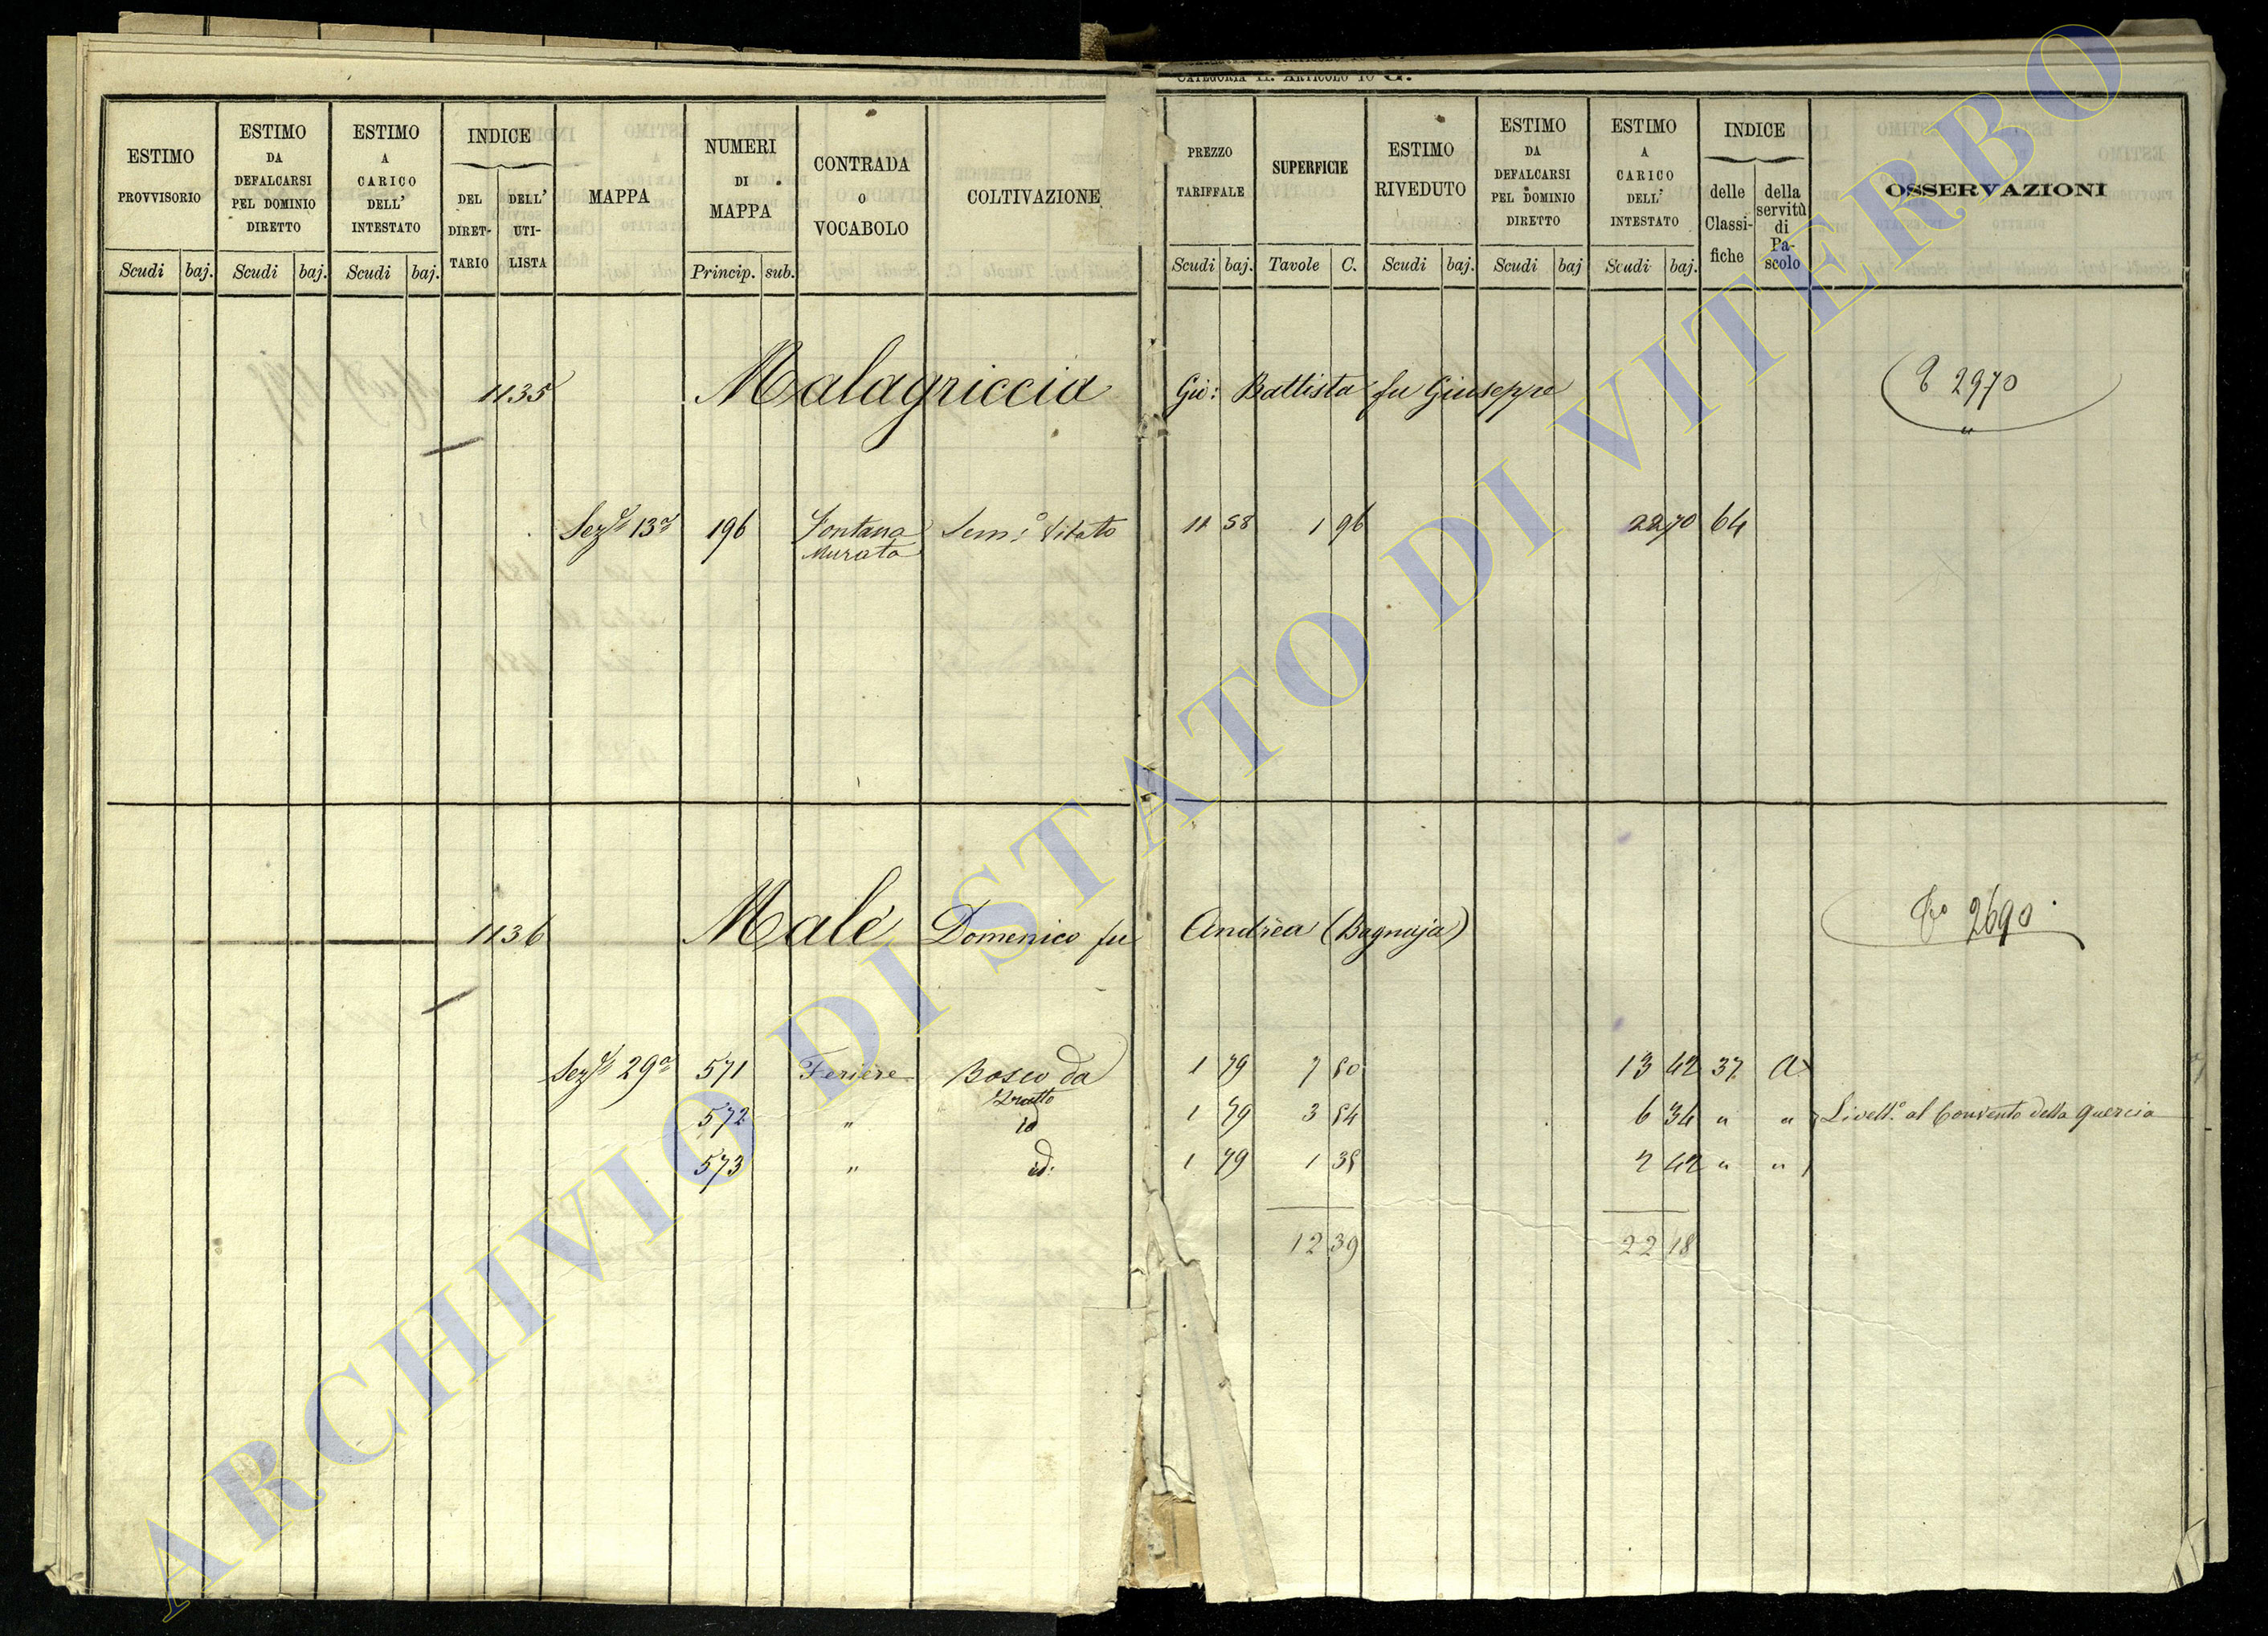 CATEGORIA II. ARTICOLO 10 G.
ESTIMO PROVVISORIO Scudi baj.
ESTIMO DA DEFALCARSI PEL DOMINIO DIRETTO Scudi baj.
ESTIMO A CARICO DELL' INTESTATO Scudi baj.
INDICE DEL DIRETTARIO DELL' UTILISTA
MAPPA
NUMERI DI MAPPA Princip. sub.
CONTRADA O VOCABOLO
COLTIVAZIONE
PREZZO TARIFFALE Scudi baj.
SUPERFICIE Tavole C.
ESTIMO RIVEDUTO Scudi baj.
ESTIMO DA DEFALCARSI PEL DOMINIO DIRETTO Scudi baj
ESTIMO A CARICO DELL' INTESTATO Scudi baj.
INDICE delle Classifiche della servitù di Pascolo
OSSERVAZIONI
1135 Malagriccia Gio: Battista fu Giuseppe 2970
Sez.e 13a 196 Fontana Murata Sem:o Vitato 11 58 1 96 22 70 64
1136 Malè Domenico fu Andrea (Bagnaja) 2690
Sez.e 29a 571 Feriere Bosco da frutto 1 79 7 50 13 42 37 a
572 " id 1 79 3 54 6 34 " " Livell.o al Convento della Quercia
573 " id: 1 79 1 35 2 42 " "
12 39 22 18
ARCHIVIO DI STATO DI VITERBO